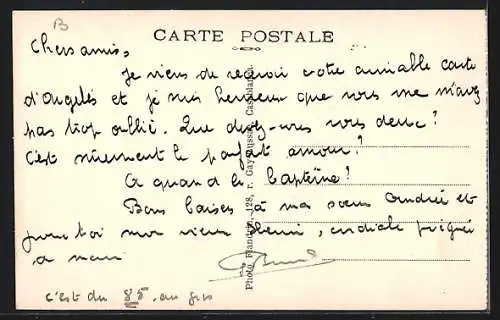 B
CARTE POSTALE
Chers amis,
Je viens de recevoir votre aimable carte
d'Angelès et je suis heureux que vous ne m'avez
pas trop oublié. Que devez-vous vous deux ?
C'est sûrement le parfait amour !
A quand le Baptême !
Bons baisers à ma sœur Andrée et
pour toi mon vieux, cordiale poignée
a main
c'est du 85. au gus
Photo Flandrin, 128, r. Gay-Lussac, Casablanca